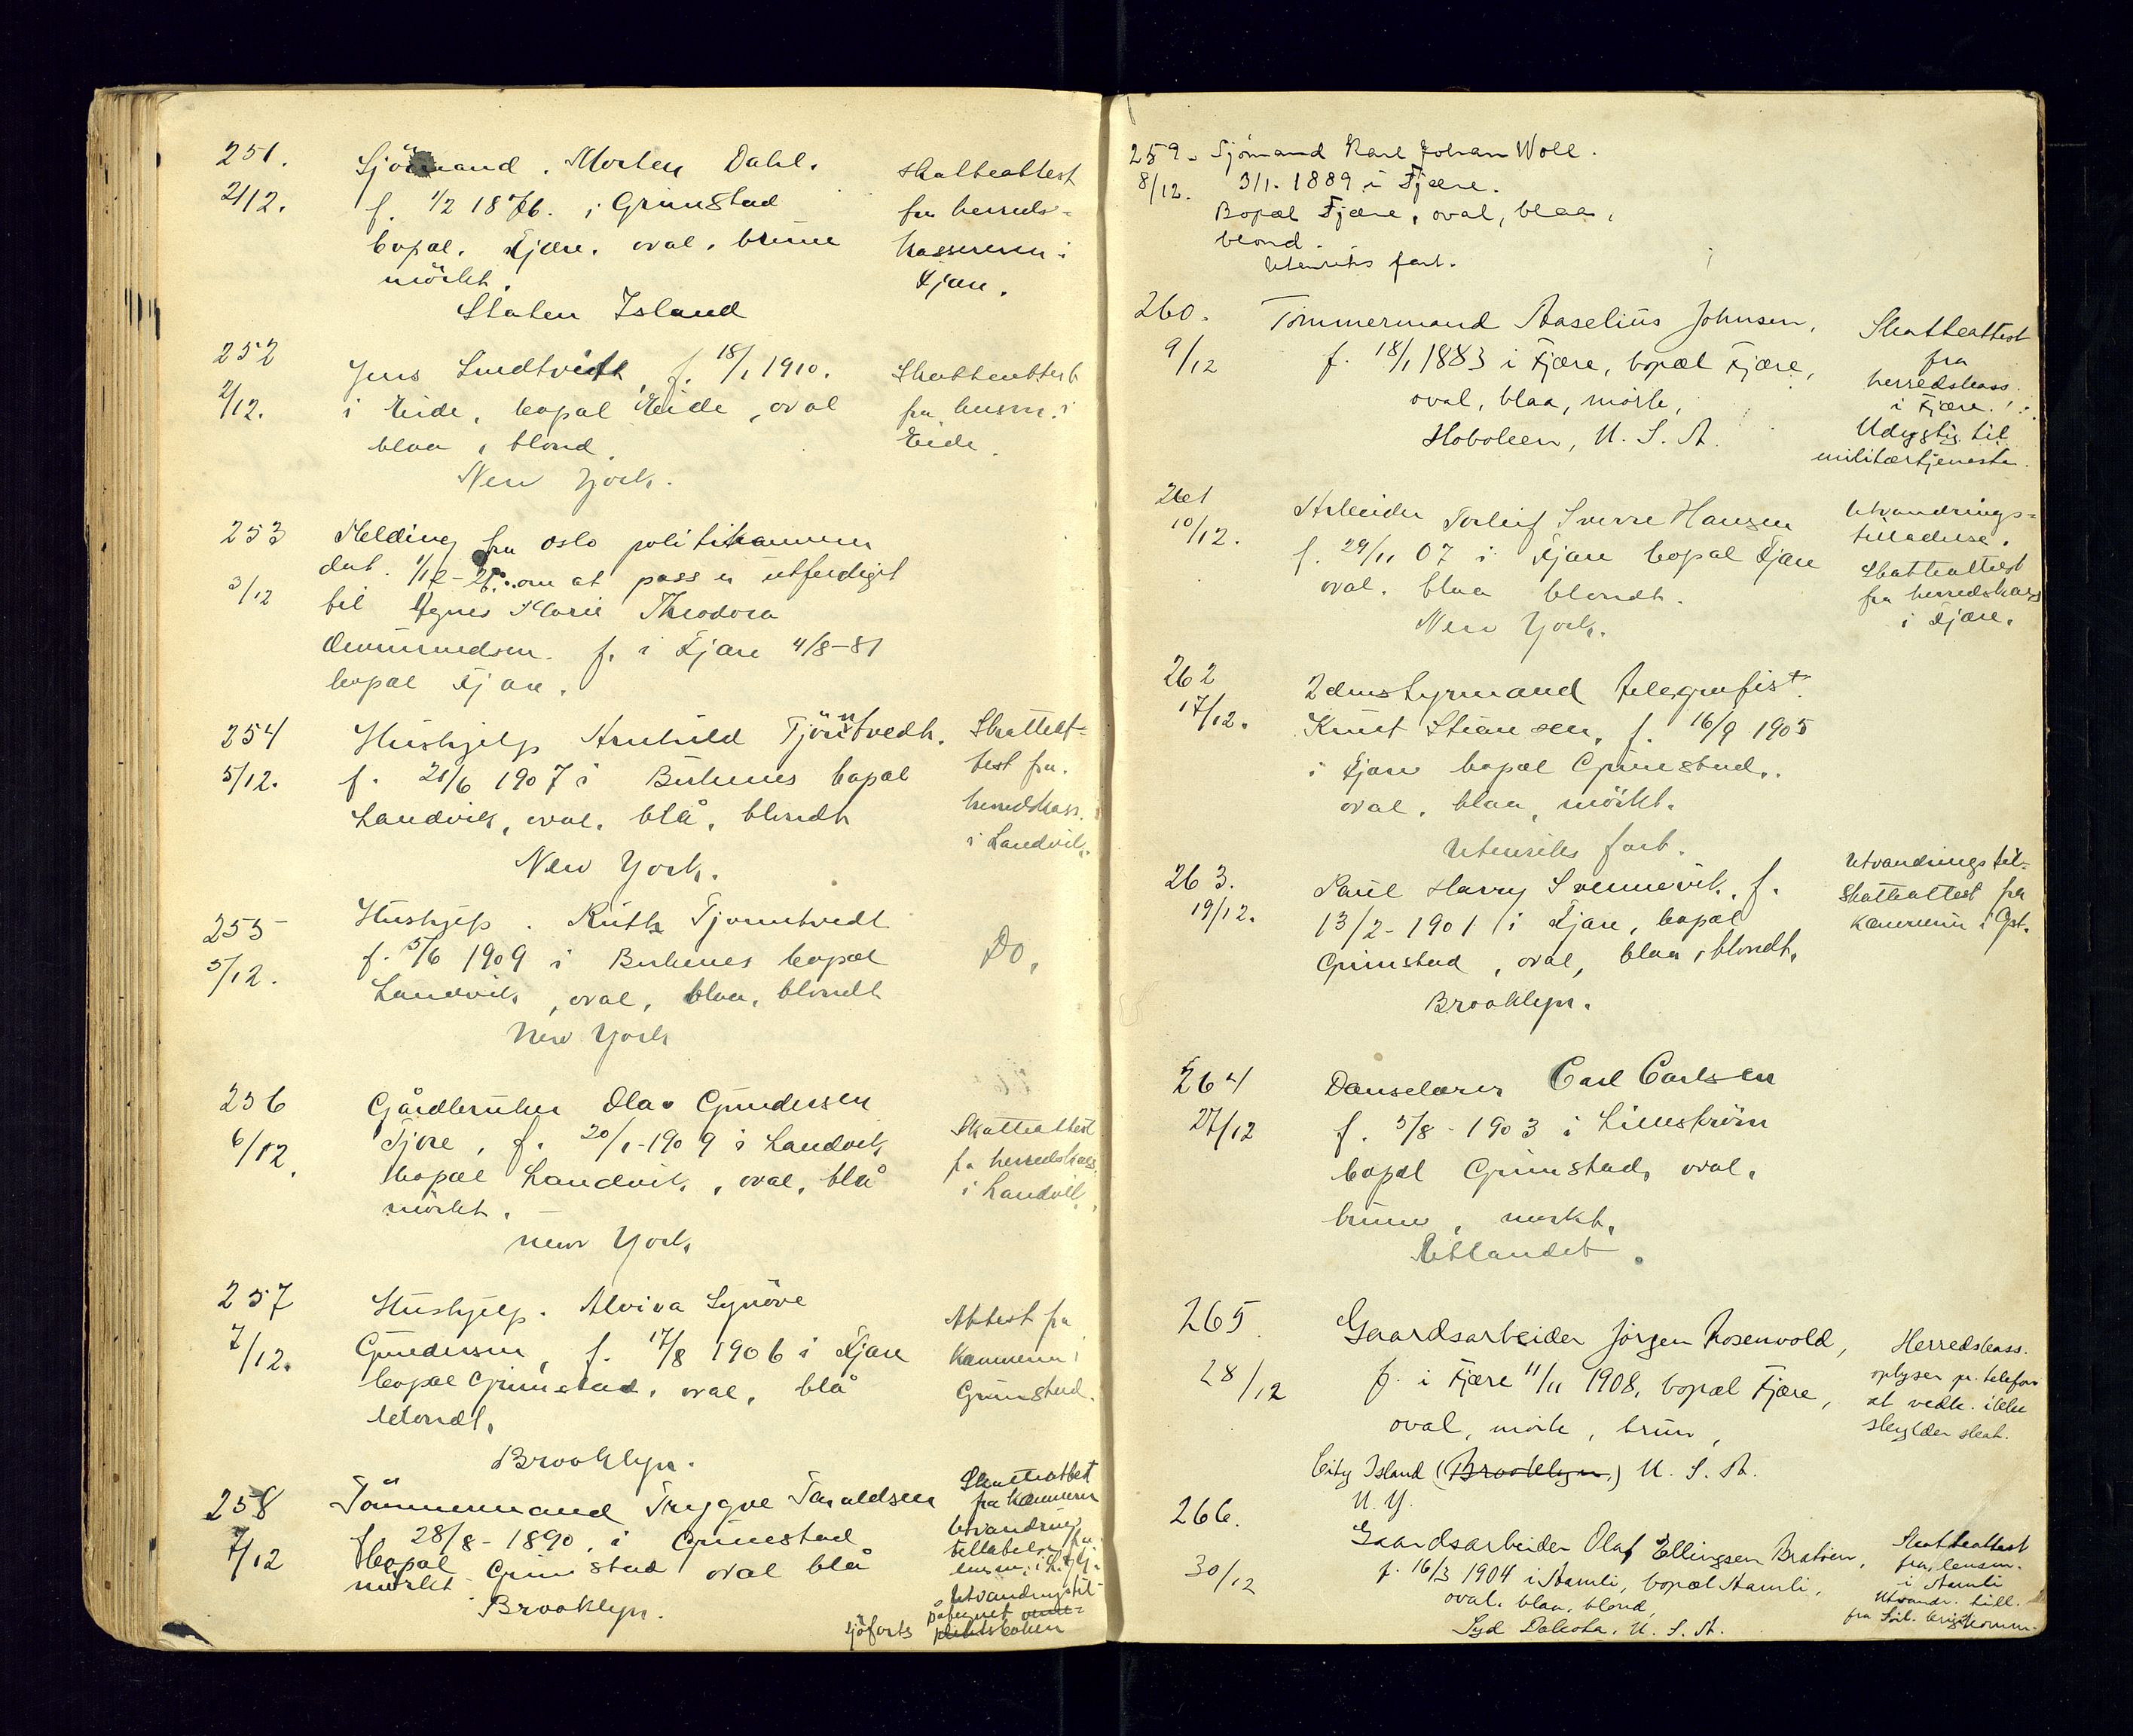 251.
2/12.
Sjömand. Morten Dahl.
f. 1/2 1876. i Grimstad
bopæl. Fjære. oval. brune
mörkt.
Staten Island
skatteattest
fra herreds-
kassereren i
Fjære.
252
2/12.
Jens Lundtveit, f. 18/1 1910.
i Eide, bopæl Eide, oval
blaa, blond.
New York.
Skatteattest
fra lensm. i
Eide.
253
3/12
Melding fra Oslo politikammer
dat. 1/12-26. om at pass er utferdiget
til Agnes Marie Theodora
f. i Fjære 4/8-81
bopæl Fjære.
254
5/12.
Hushjelp Arnhild Tjönntvedt.
f. 21/6 1907 i Birkenes bopæl
Landvik, oval, blå, blondt
New York.
Skatteat-
test fra.
herredskass.
i Landvik.
255
5/12.
Hushjelp. Ruth Tjonntvedt
f. 5/6 1909 i Birkenes bopæl
Landvik, oval, blaa, blondt
New York
Do,
256
6/12.
Gårdbruker Olav Gundersen
Tjore, f. 20/1-1909 i Landvik
bopæl Landvik, oval, blå
mörkt.
New York
Skatteattest
fa herredskass.
i Landvik.
257
7/12.
Hushjelp. Alviva Synöve
Gundersen, f. 17/8 1906 i Fjære
bopæl Grimstad, oval, blå
blondt.
Brooklyn.
Attest fra
Kæmneren i
Grimstad.
258
7/12
Tömmermand Trygve Taraldsen
f. 28/8-1890, i Grimstad
bopæl Grimstad oval blå
mörkt
Brooklyn.
Skatteattest
fra Kæmneren
Utvandrings
tillatelse fra
Utvandringstil-
påtegnet
sjöforts
259.
8/12.
Sjömand Karl Johan Woll.
3/1. 1889 i Fjære.
Bopæl Fjære, oval, blaa,
blond.
Utenriks fart.
260.
9/12
Tömmermand Aaselius Johnsen,
f. 18/1 1883 i Fjære, bopæl Fjære,
oval, blaa, mörk,
Hoboken, U. S. A.
Skatteattest
fra
herredskass.
i Fjære.
Udygtig til
militærtjeneste.
261
10/12.
Arbeider Torleif Sverre Hansen
f. 29/11 07 i Fjære bopæl Fjære
oval. blaa blondt.
New York.
Utvandrings-
tilladelse.
Skatteattest
fra herredskass
i Fjære.
262
17/12.
2denstyrmand telegrafist.
Knut Stiansen, f. 16/9 1905
i Fjære bopæl Grimstad.
oval, blaa, mörkt.
Utenriks fart.
263.
19/12.
Paul Harry Svennevik, f.
13/2-1901 i Fjære, bopæl
Grimstad, oval, blaa, blondt.
Brooklyn.
Utvandringstil-
Skatteattest fra
Kæmneren i Gst.
264
27/12
Danselærer Carl Carlsen
f. 5/8-1903 i
bopæl Grimstad, oval,
brune, mørkt,
Utlandet.
265.
28/12
Gaardsarbeider Jörgen Rosenvold,
f. i Fjære 11/11 1908, bopæl Fjære,
oval, mörk, brun,
City Island (Brooklyn) U. S. A.
N. Y.
Herredskass.
oplyser pr. telefon
at vedk. ikke
skylder skat.
266.
30/12
Gaardsarbeider Olaf Ellingsen Bratlien,
f. 16/3 1904 i Aamli, bopæl Aamli,
oval, blaa, blond,
Syd Dakota, U. S. A.
Skatteattest
fra lensm.
i Aamli
Utvandr. till.
fra